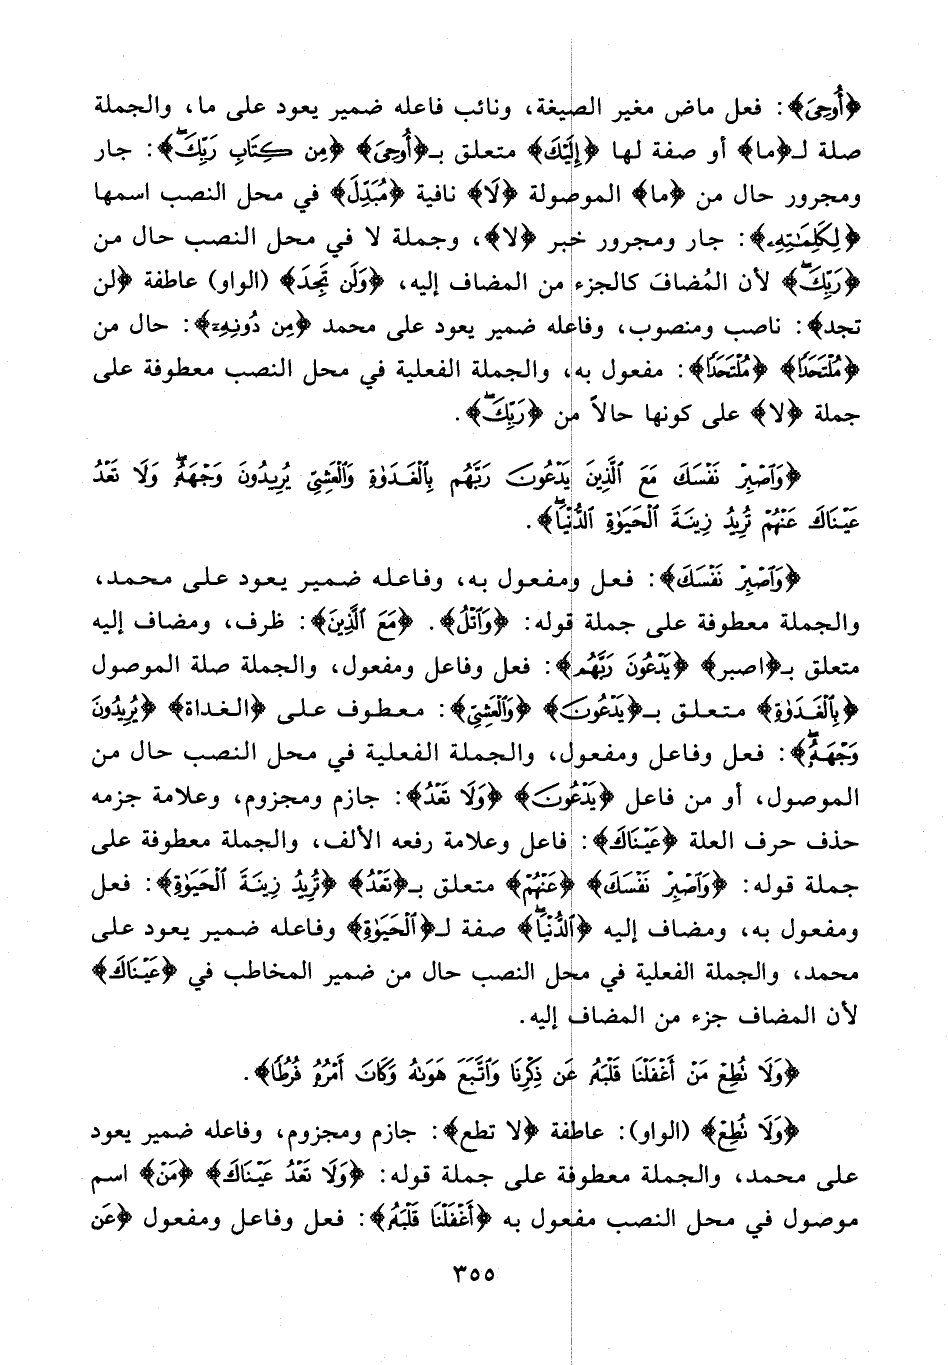 ﴿أُوحِيَ﴾: فعل ماض مغير الصيغة، ونائب فاعله ضمير يعود على ما، والجملة
صلة لـ﴿ما﴾ أو صفة لها ﴿إِلَيْكَ﴾ متعلق بـ﴿أُوحِيَ﴾ ﴿مِن كِتَابِ رَبِّكَ﴾: جار
ومجرور حال من ﴿ما﴾ الموصولة ﴿لَا﴾ نافية ﴿مُبَدِّلَ﴾ في محل النصب اسمها
﴿لِكَلِمَٰتِهِۦ﴾: جار ومجرور خبر ﴿لا﴾، وجملة لا في محل النصب حال من
﴿رَبِّكَ﴾ لأن المُضافَ كالجزء من المضاف إليه، ﴿وَلَن تَجِدَ﴾ (الواو) عاطفة ﴿لن
تجد﴾: ناصب ومنصوب، وفاعله ضمير يعود على محمد ﴿مِن دُونِهِۦ﴾: حال من
﴿مُلْتَحَدًا﴾ ﴿مُلْتَحَدًا﴾: مفعول به، والجملة الفعلية في محل النصب معطوفة على
جملة ﴿لا﴾ على كونها حالاً من ﴿رَبِّكَ﴾.
﴿وَٱصْبِرْ نَفْسَكَ مَعَ ٱلَّذِينَ يَدْعُونَ رَبَّهُم بِٱلْغَدَوٰةِ وَٱلْعَشِيِّ يُرِيدُونَ وَجْهَهُۥ وَلَا تَعْدُ
عَيْنَاكَ عَنْهُمْ تُرِيدُ زِينَةَ ٱلْحَيَوٰةِ ٱلدُّنْيَا﴾.
﴿وَٱصْبِرْ نَفْسَكَ﴾: فعل ومفعول به، وفاعله ضمير يعود على محمد،
والجملة معطوفة على جملة قوله: ﴿وَٱتْلُ﴾. ﴿مَعَ ٱلَّذِينَ﴾: ظرف، ومضاف إليه
متعلق بـ﴿اصبر﴾ ﴿يَدْعُونَ رَبَّهُم﴾: فعل وفاعل ومفعول، والجملة صلة الموصول
﴿بِٱلْغَدَوٰةِ﴾ متعلق بـ﴿يَدْعُونَ﴾ ﴿وَٱلْعَشِيِّ﴾: معطوف على ﴿الغداة﴾ ﴿يُرِيدُونَ
وَجْهَهُۥ﴾: فعل وفاعل ومفعول، والجملة الفعلية في محل النصب حال من
الموصول، أو من فاعل ﴿يَدْعُونَ﴾ ﴿وَلَا تَعْدُ﴾: جازم ومجزوم، وعلامة جزمه
حذف حرف العلة ﴿عَيْنَاكَ﴾: فاعل وعلامة رفعه الألف، والجملة معطوفة على
جملة قوله: ﴿وَٱصْبِرْ نَفْسَكَ﴾ ﴿عَنْهُمْ﴾ متعلق بـ﴿تَعْدُ﴾ ﴿تُرِيدُ زِينَةَ ٱلْحَيَوٰةِ﴾: فعل
ومفعول به، ومضاف إليه ﴿ٱلدُّنْيَا﴾ صفة لـ﴿ٱلْحَيَوٰةِ﴾ وفاعله ضمير يعود على
محمد، والجملة الفعلية في محل النصب حال من ضمير المخاطب في ﴿عَيْنَاكَ﴾
لأن المضاف جزء من المضاف إليه.
﴿وَلَا تُطِعْ مَنْ أَغْفَلْنَا قَلْبَهُۥ عَن ذِكْرِنَا وَٱتَّبَعَ هَوَىٰهُ وَكَانَ أَمْرُهُۥ فُرُطًا﴾.
﴿وَلَا تُطِعْ﴾ (الواو): عاطفة ﴿لا تطع﴾: جازم ومجزوم، وفاعله ضمير يعود
على محمد، والجملة معطوفة على جملة قوله: ﴿وَلَا تَعْدُ عَيْنَاكَ﴾ ﴿مَنْ﴾ اسم
موصول في محل النصب مفعول به ﴿أَغْفَلْنَا قَلْبَهُۥ﴾: فعل وفاعل ومفعول ﴿عَن
٣٥٥